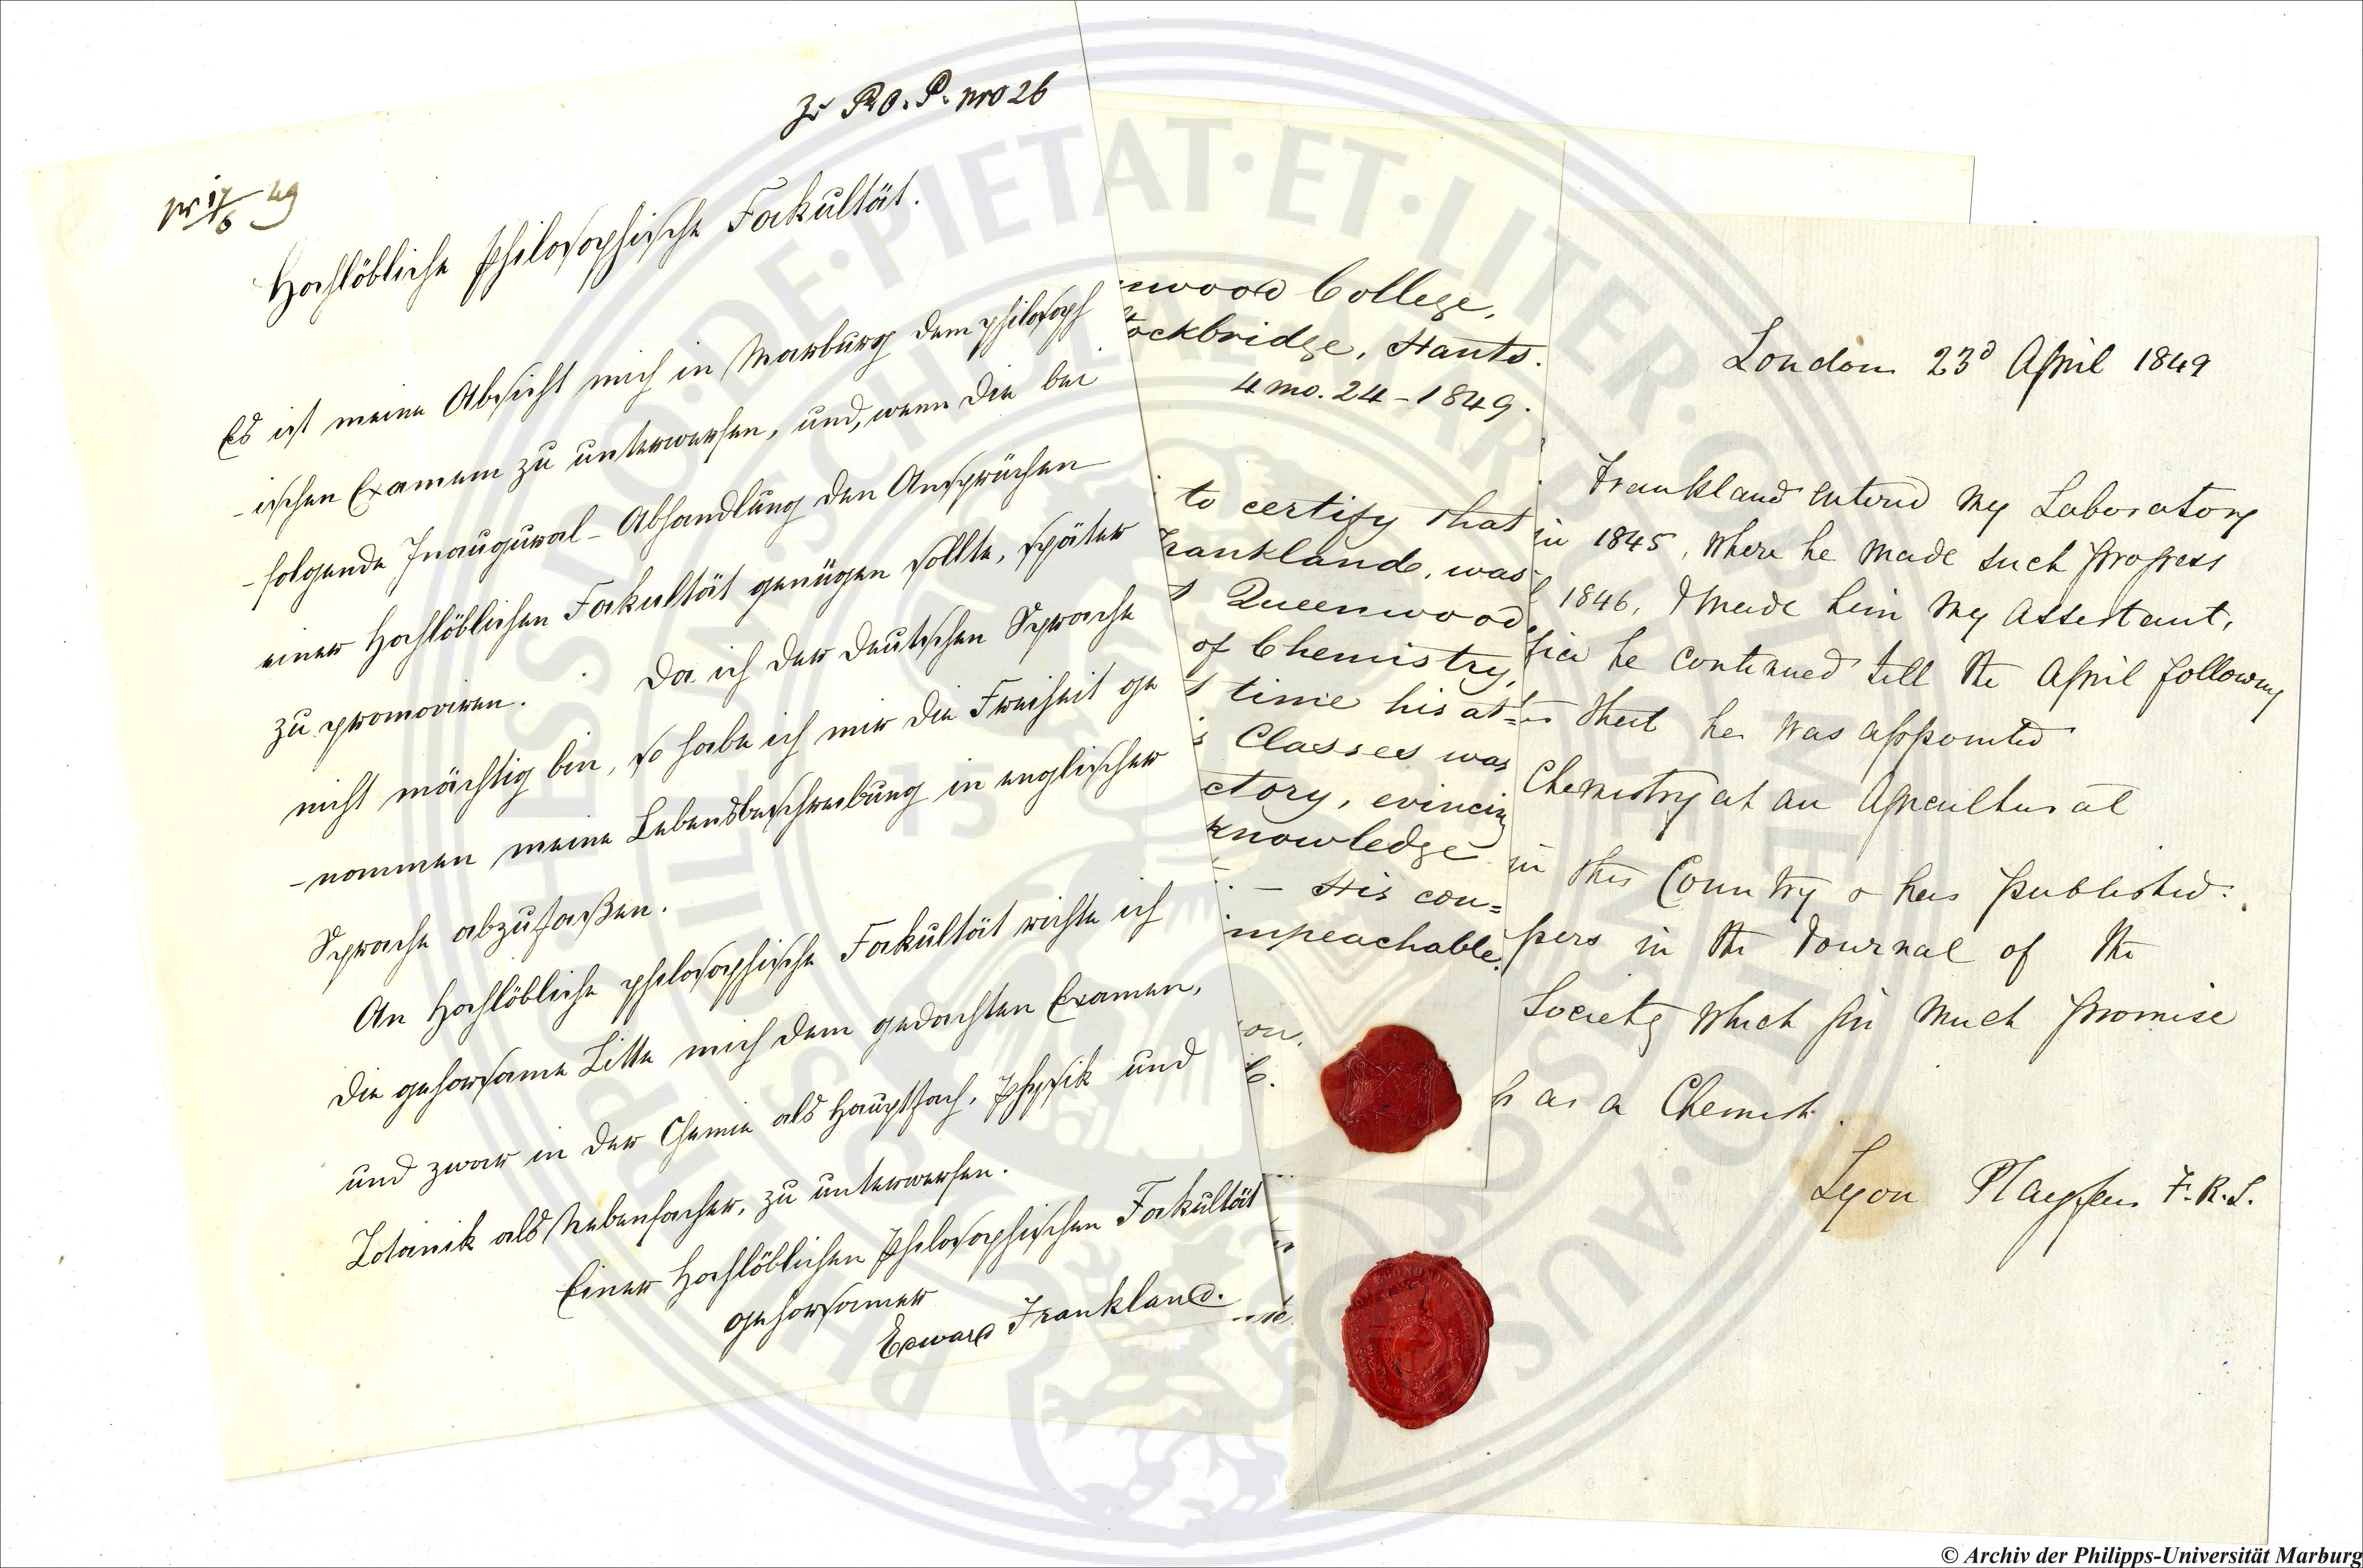 Zu R.O.P. nro 26
pr 17/6 49
Hochlöbliche philosophische Fakultät.
Es ist meine Absicht mich in Marburg dem philosoph
-ischen Examen zu unterwerfen, und, wenn die bei
-folgende Inaugural-Abhandlung den Ansprüchen
einer Hochlöblichen Fakultät genügen sollte, später
zu promoviren. Da ich der deutschen Sprache
nicht mächtig bin, so habe ich mir die Freiheit ge
-nommen meine Lebensbeschreibung in englischer
Sprache abzufaßen.
An Hochlöbliche philosophische Fakultät richte ich
die gehorsame Bitte mich dem gedachten Examen,
und zwar in der Chemie als Hauptfach, Physik und
Botanik als Nebenfächer, zu unterwerfen.
Einer Hochlöblichen Philosophischen Fakultät
gehorsamer
Edward Frankland.
nwood College,
tockbridge, Hants.
4 mo. 24 - 1849.
to certify that
rankland, was
t Queenwood
of Chemistry,
t time his at=
s Classes was
ctory, evincing
knowledge
- His con=
mpeachable.
on.
London 23d April 1849
Frankland entered my Laboratory
in 1845, where he made such progress
1846, I made him my assistant,
fice he continued till the April following
that he was appointed
Chemistry at an Agricultural
in this Country & has published
pers in the Journal of the
Society which give much promise
as a Chemist.
Lyon Playfair F.R.S.
PIETAT·ET·LITER
© Archiv der Philipps-Universität Marburg